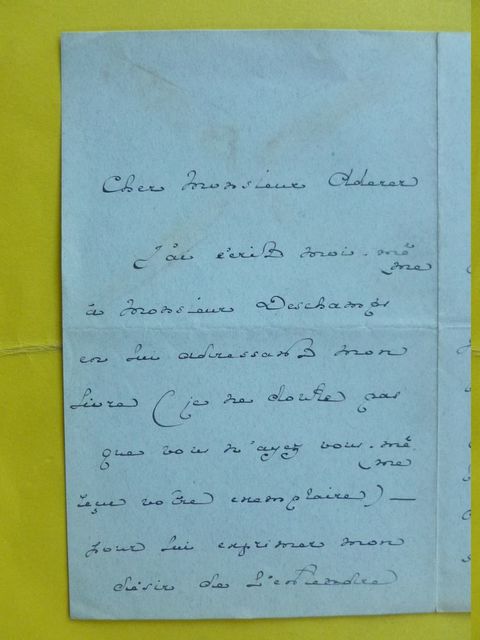 Cher Monsieur Aderer
J'ai écrit moi-mê
me
à Monsieur Deschamps
en lui adressant mon
livre (je ne doute pas
que vous n'ayez vous-mê
me
reçu votre exemplaire) —
pour lui exprimer mon
désir de l'entendre